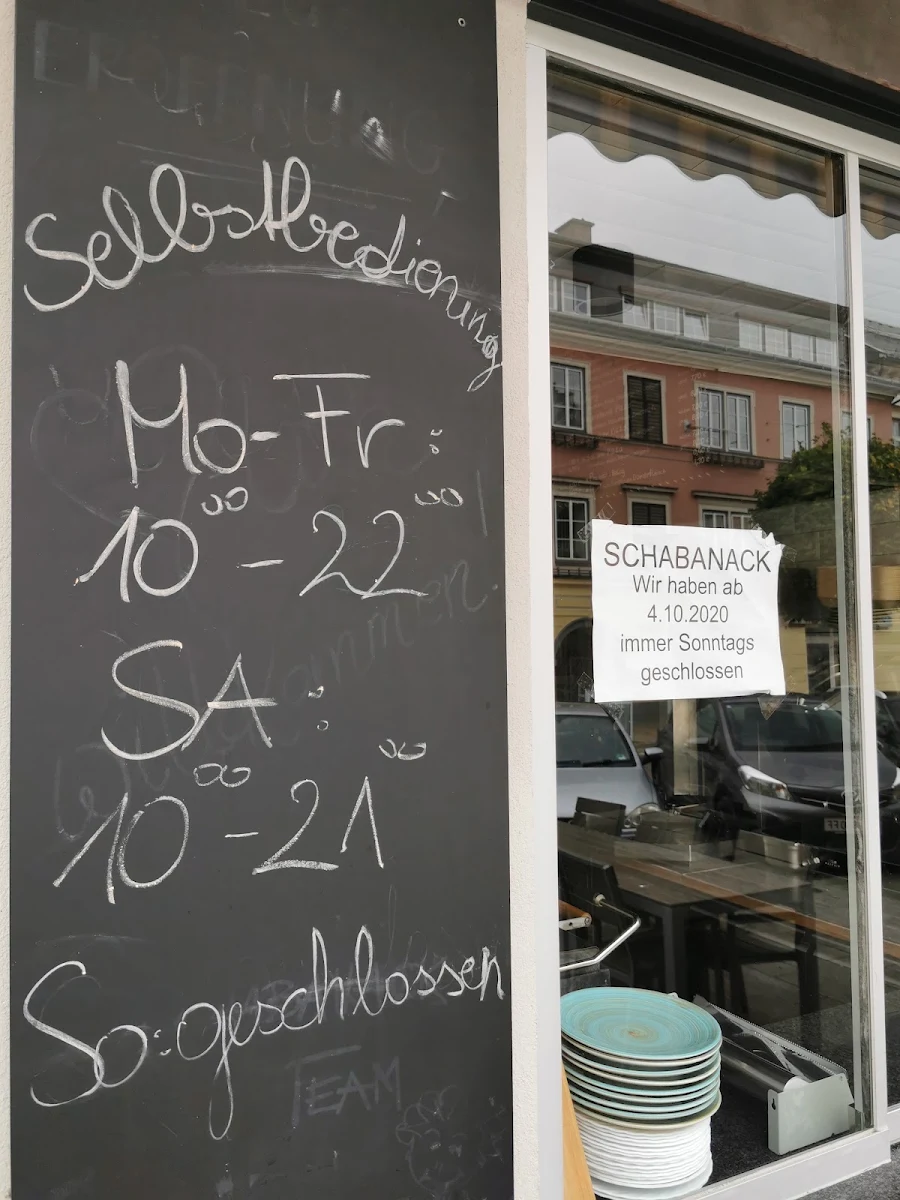 Selbstbedienung
Mo-Fr:
10⁰⁰ - 22⁰⁰
SA:
10⁰⁰ - 21⁰⁰
So: geschlossen
TEAM
SCHABANACK
Wir haben ab
4.10.2020
immer Sonntags
geschlossen